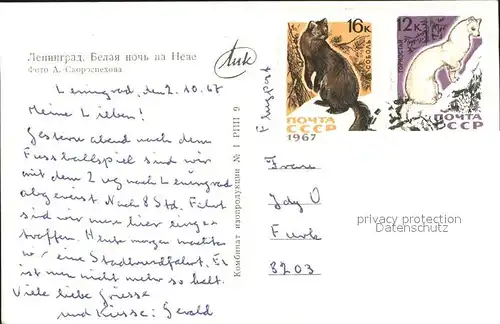 Ленинград. Белая ночь на Неве
Фото А. Скороспехова
Лик
Leningrad, den 2. 10. 67
Meine Lieben!
Gestern abend nach dem
Fussballspiel sind wir
mit dem Zug nach Leningrad
abgereist. Nach 8 Std. Fahrt
sind wir nun hier einge-
troffen. Heute morgen machten
wir eine Stadtrundfahrt. Es
ist nun nicht mehr so kalt.
Viele liebe Grüsse
und Küsse: Gerald
Комбинат цветной печати № 1 РПП 6
16к
СОБОЛЬ
ПОЧТА
СССР
1967
12к
ПОЧТА
СССР
Flugpost
Frau
Jdy
8203
privacy protection
Datenschutz